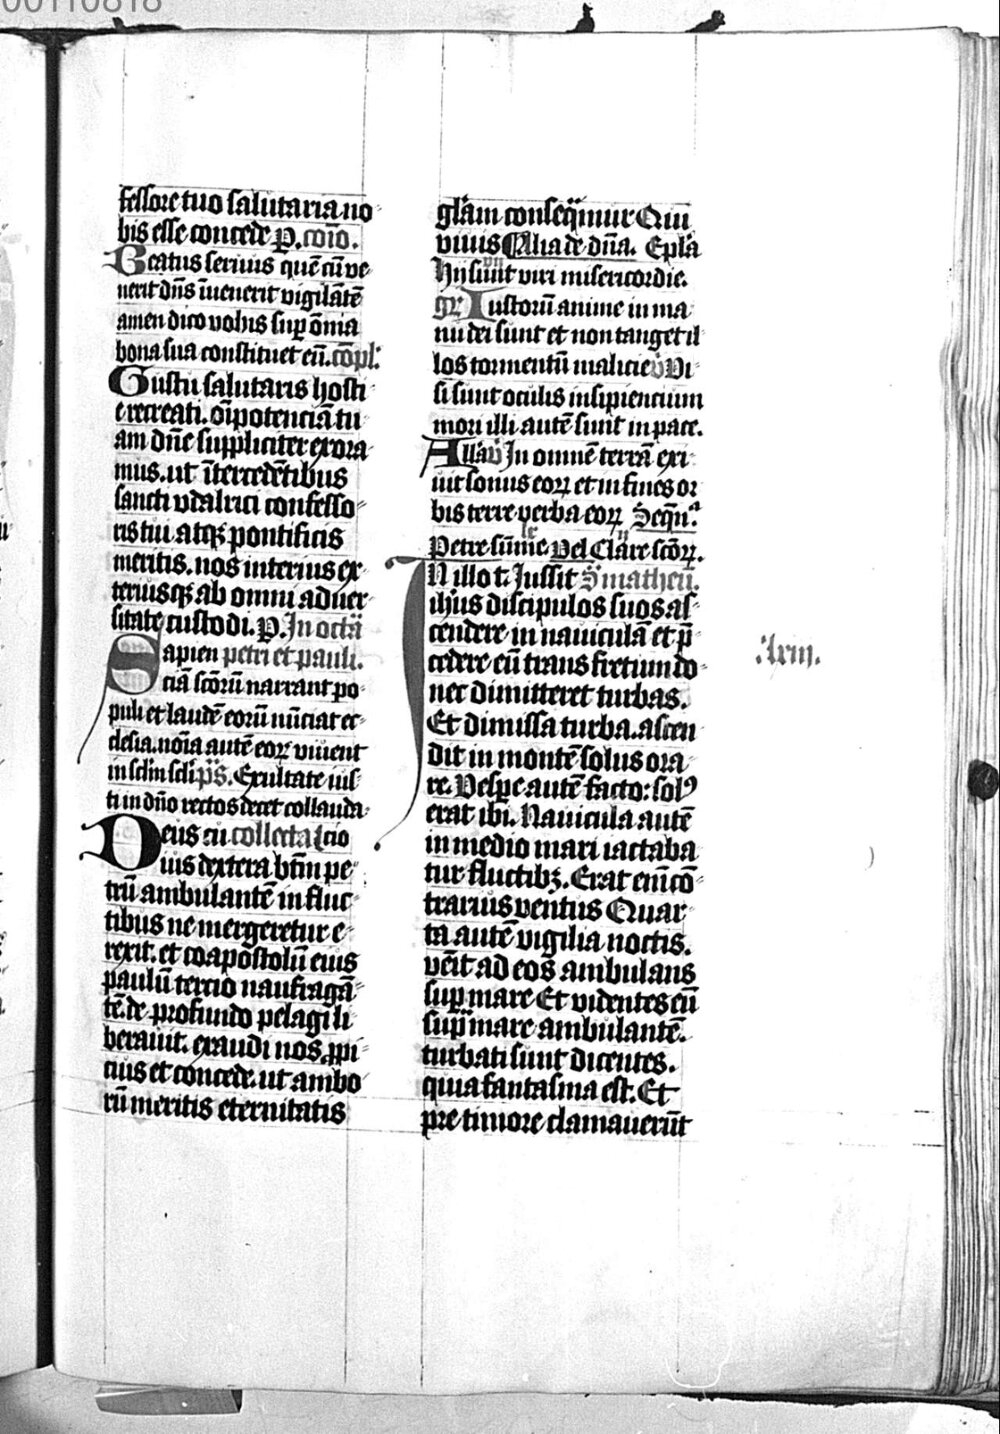 00110818
fessore tuo salutaria no
bis esse concede P. com̄o.
Beatus seruus quē cū ve
nerit dn̄s īuenerit vigilātē
amen dico vobis sup̄ om̄ia
bona sua constituet eū. cōpl̄.
Gustu salutaris hosti
e recreati. oīpotenciā tu
am dn̄e suppliciter exora
mus. ut ītercedētibus
sancti vdalrici confesso
ris tui atqꝫ pontificis
meritis. nos interius ex
teriusqꝫ ab omni aduer
sitate custodi. P. In octā
Sapien petri et pauli.
ciā scōrū narrant po
puli et laudē eorū nūciat ec
clesia. noīa autē eoꝝ viuent
in sclm̄ scli p̄s. Exultate ius
ti in dn̄o rectos decet collauda
Deus cū collecta lcio
uius dextera btm̄ pe
trū ambulantē in fluc
tibus ne mergeretur e
rexit. et coapostolū eius
paulū tercio naufragā
tē. de profundo pelagi li
berauit. exaudi nos ꝓpi
cius et concede. ut ambo
rū meritis eternitatis
glām conseqm̄ur Qui
viuis Alia de dn̄a. Epl̄a
Hij sunt viri misericordie.
gr̄ Iustorū anime in ma
nu dei sunt et non tanget il
los tormentū malicie v̄ Vi
si sunt oculis insipiencium
mori illi autē sunt in pace.
Alla v̄ In omnē terrā exi
uit sonus eoꝝ et in fines or
bis terre verba eoꝝ Seqn̄.
Petre sūme Vel Clāre scōꝝ.
In illo t. Jussit S matheū.
ihus discipulos suos as
cendere in nauiculā et p̄
cedere eū trans fretum do
nec dimitteret turbas.
Et dimissa turba. ascen
dit in montē solus ora
re. Vespe autē facto: solꝰ
erat ibi. Nauicula autē
in medio mari iactaba
tur fluctibꝫ. Erat em̄ cō
trarius ventus Quar
ta autē vigilia noctis.
vēit ad eos ambulans
sup̄ mare Et videntes eū
sup̄ mare ambulantē.
turbati sunt dicentes.
quia fantasma est. Et
pre timore clamauerūt